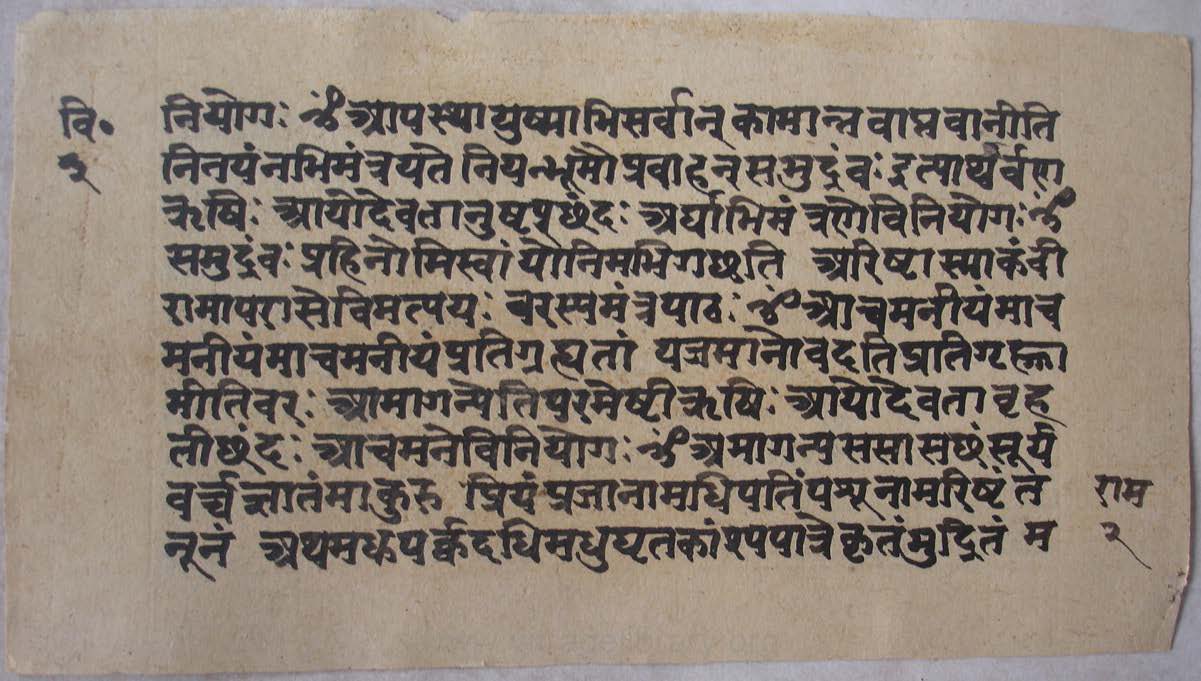 वि॰
२
नियोगः ॐ आपस्थायुष्माभिसर्वान् कामान्नवाप्नवानीति
निनयंनभिमंत्रयते निय न्भूमौ प्रवाहन् समुद्रंवः इत्याथर्वण
ऋषिः आयोदेवतानुष्टपुछंदः अर्घाभिमंत्रणेविनियोगः ॐ
समुद्रंवः प्रहिनोमिस्वां योनिमभिगछति अरिष्टास्माकंवी
रामापरासेविमत्पयः वरस्यमंत्रपाठः ॐ आचमनीयंमाच
मनीयंमाचमनीयंप्रतिग्रह्यतां यजमानोवदति प्रतिगृह्णा
मीतिवरः आमागन्नेतिपरमेष्टीऋषिः आयोदेवतावृह
तीछंदः आचमनेविनियोगः ॐ अमागन्यससासछंसूर्य
वर्च्च त्वातंमाकुरु प्रियंप्रजानामधिपतिंपशूनामरिष्टं त
नूनं अथमधुपर्क्कदधिमधुघृतकांश्यपात्रेकृतंमुद्रितं म
राम
२